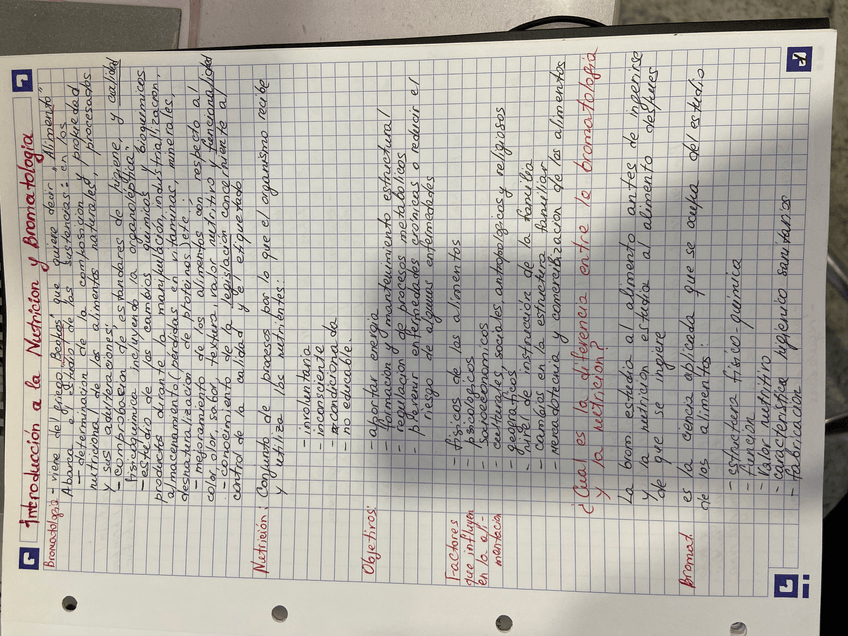 Introduccion a la Nutricion y Bromatologia
Bromatologia - viene del griego "Bromos" que quiere decir "Alimento"
Abarca el estudio de las sustancias: en los
- determinacion de la composicion y propiedad
nutricional de los alimentos naturales, procesados
y sus adulteraciones;
- comprobacion de estandares de higiene, y calidad
fisicoquimica incluyendo la organoleptica;
- estudio de los cambios quimicos y bioquimicos
productos durante la manipulación, industrialización,
almacenamiento (pérdidas en vitaminas, minerales,
desnaturalización de proteínas) etc;
- mejoramiento de los alimentos con respecto al
color, olor, sabor, textura valor nutritivo y funcionalidad
- conocimiento de la legislación concerniente al
control de la calidad y el etiquetado
Nutrición: Conjunto de procesos por lo que el organismo recibe
y utiliza los nutrientes:
- involuntaria
- inconsciente
- acondicionada
- no educable.
Objetivos: - aportar energia
- formación y mantenimiento estructural
- regulación de procesos metabolicos
- prevenir enfermedades crónicas o reducir el
riesgo de algunas enfermedades
Factores
que influyen
en la ali-
mentacion
- físicos de los alimentos
- psicologicos
- socioeconomicos
- culturales, sociales, antropologicos y religiosos
- geograficos
- nivel de instrucción de la familia
- cambios en la estructura familiar
- mercadotecnia y comercilización de los alimentos
¿Cual es la diferencia entre la bromatologia
y la nutricion?
La brom. estudia al alimento antes de ingerirse
y la nutrición estudia al alimento después
de que se ingiere
Bromat. es la ciencia aplicada que se ocupa del estudio
de los alimentos:
- estructura físico-química
- función
- valor nutritivo
- característica higienico sanitarios
- fabricación